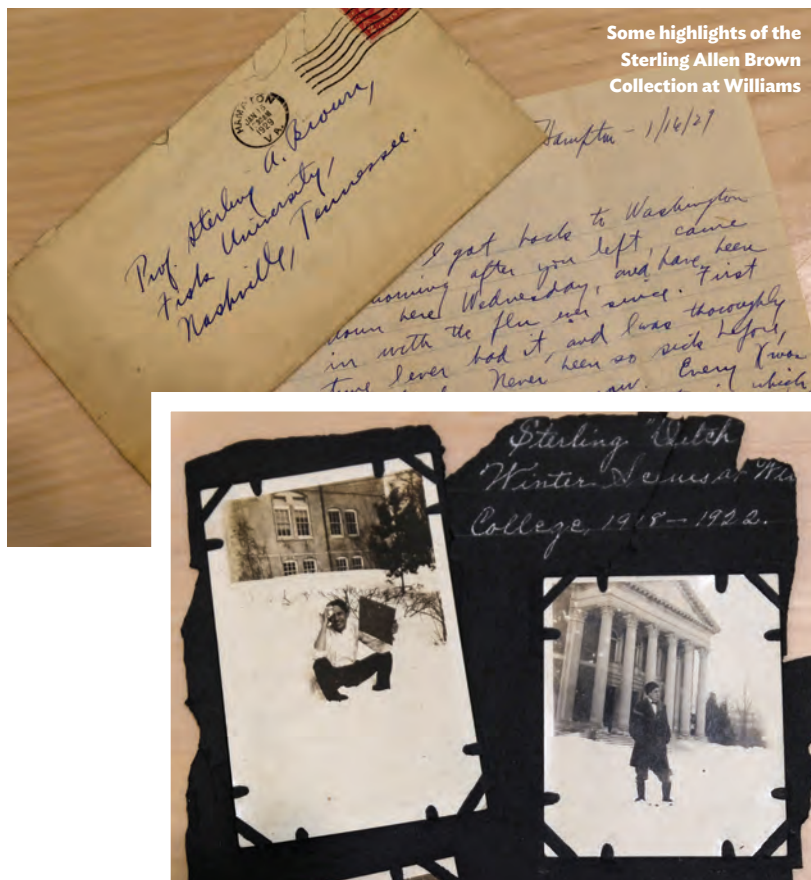 Some highlights of the
Sterling Allen Brown
Collection at Williams
HAMPTON
JAN 16
1929
VA.
Prof. Sterling A. Brown,
Fisk University,
Nashville, Tennessee.
Hampton - 1/16/29
I got back to Washington
morning after you left, came
down here Wednesday, and have been
in with the flu ever since. First
time I ever had it, and I was thoroughly
Never been so sick before,
Every
which
Sterling "Dutch
Winter Scenes at
College, 1918-1922.